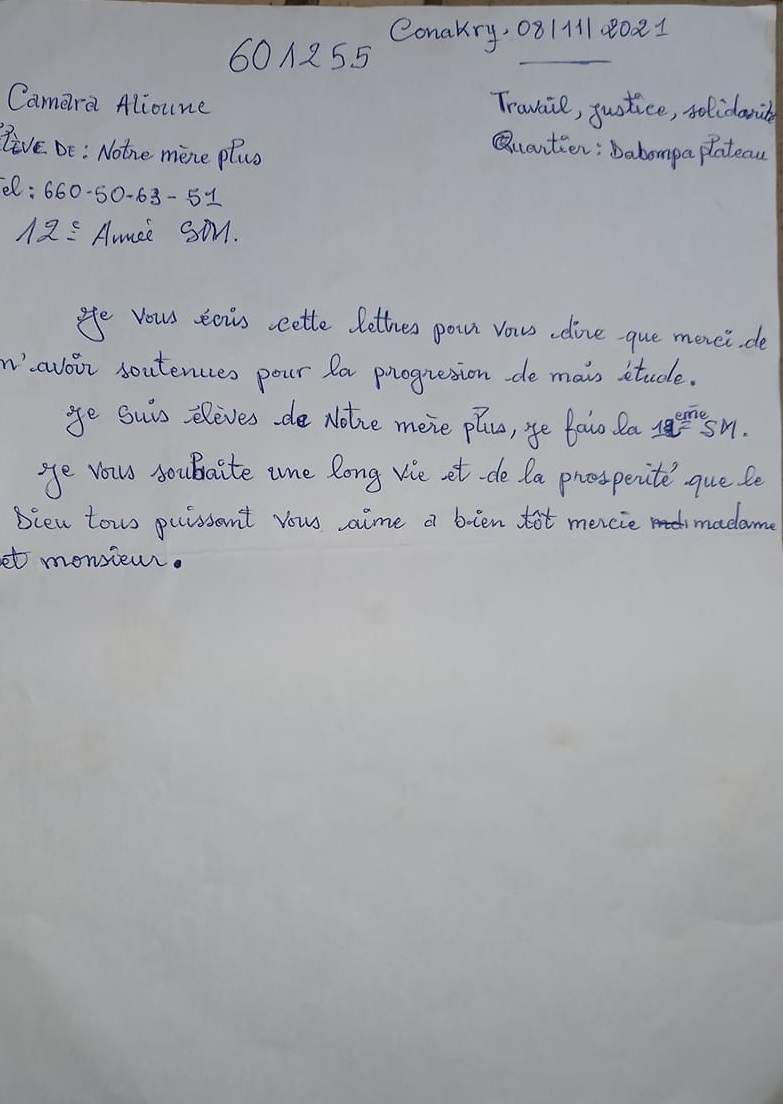 Conakry, 08/11/2021
601255
Camara Alioune
Travail, justice, solidarité
ÈLÈVE DE : Notre mère plus
Quartier : Dabompa plateau
Tel : 660-50-63-51
12e Année SM.
Je vous écris cette lettres pour vous dire que merci de
m'avoir soutenues pour la progresion de mais étude.
Je suis élèves de Notre mère plus, je fais la 12eme SM.
Je vous souhaite une long vie et de la prosperité que le
Dieu tous puissant vous aime a bien tôt mercie madame
et monsieur.